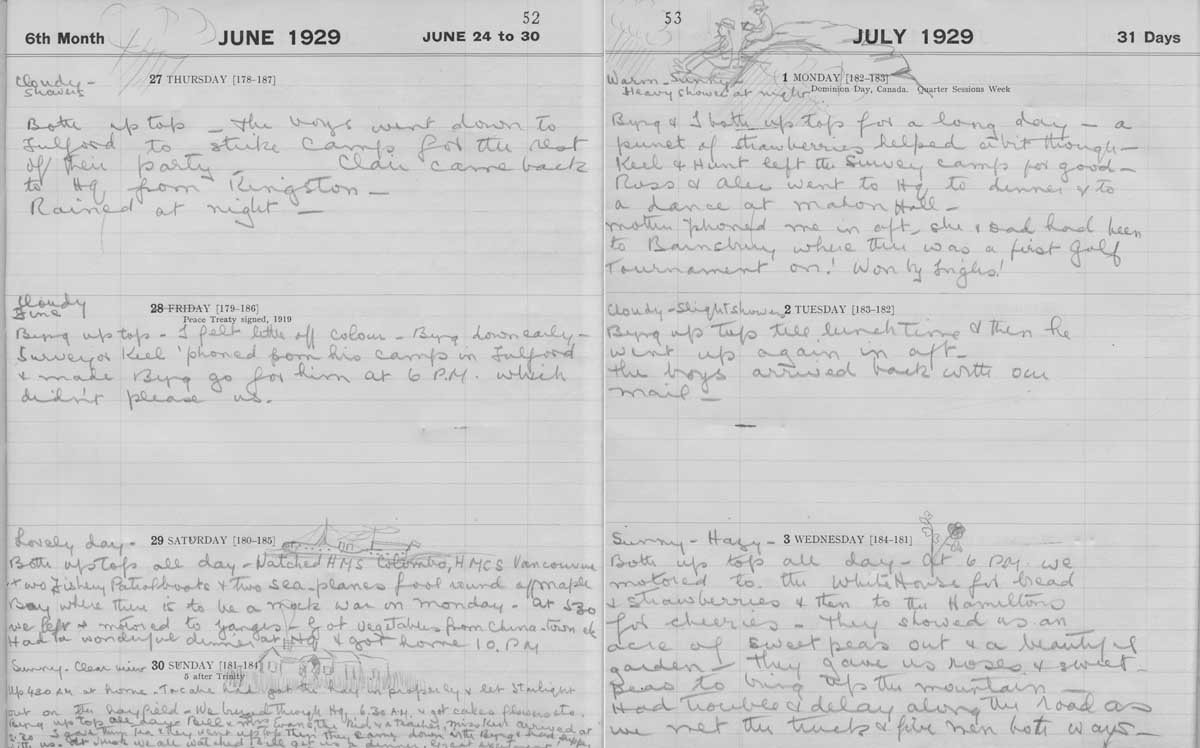 52
6th Month JUNE 1929 JUNE 24 to 30
Cloudy -
showers
27 THURSDAY [178-187]
Both up top - The boys went down to
Fulford to strike camp for the rest
of their party - Clair came back
to Hq from Kingston -
Rained at night -
Cloudy
Fine
28 FRIDAY [179-186]
Peace Treaty signed, 1919
Byng up top - I felt little off colour - Byng down early -
Surveyor Keel 'phoned from his camp in Fulford
& made Byng go for him at 6 P.M. which
didn't please us.
Lovely day -
29 SATURDAY [180-185]
Both up top all day - Watched HMS Colombo, HMCS Vancouver
& two Fishery Patrol boats & two sea planes fool round off maple
Bay where there is to be a mock war on monday - at 5.30
we left & motored to Ganges - Got vegetables from China-town etc
Had a wonderful dinner at Hq & got home 10. PM
Sunny - Clear view
30 SUNDAY [181-184]
5 after Trinity
Up 4.30 AM at home - got the hay in properly & let Starlight
out on the hayfield - We through Hq 6.30 AM & got cakes flowers etc.
Byng up top all day Bill & mrs kid & arrived at
2.30 I gave them tea & they went up top then they came down with Byng &
with us. we all watched Bill get a dinner
53
JULY 1929 31 Days
Warm - Sunny
Heavy shower at night
1 MONDAY [182-183]
Dominion Day, Canada. Quarter Sessions Week
Byng & I both up top for a long day - a
punet of strawberries helped a bit though -
Keel & Hunt left the Survey camp for good -
Ross & Alec went to Hq to dinner & to
a dance at mahon Hall -
mother 'phoned me in aft - she & Dad had been
to Barnsbury where there was a first Golf
Tournament on! Won by Inglis!
Cloudy - Slight Shower
2 TUESDAY [183-182]
Byng up top till lunch time & then he
went up again in aft -
The boys arrived back with our
mail -
Sunny - Hazy -
3 WEDNESDAY [184-181]
Both up top all day - At 6 P.M. we
motored to the White House for bread
& strawberries & then to the Hamiltons
for cherries - They showed us an
acre of sweet peas out & a beautiful
garden - They gave us roses & sweet-
peas to bring up the mountain -
Had trouble & delay along the road as
we met the truck & five men both ways -